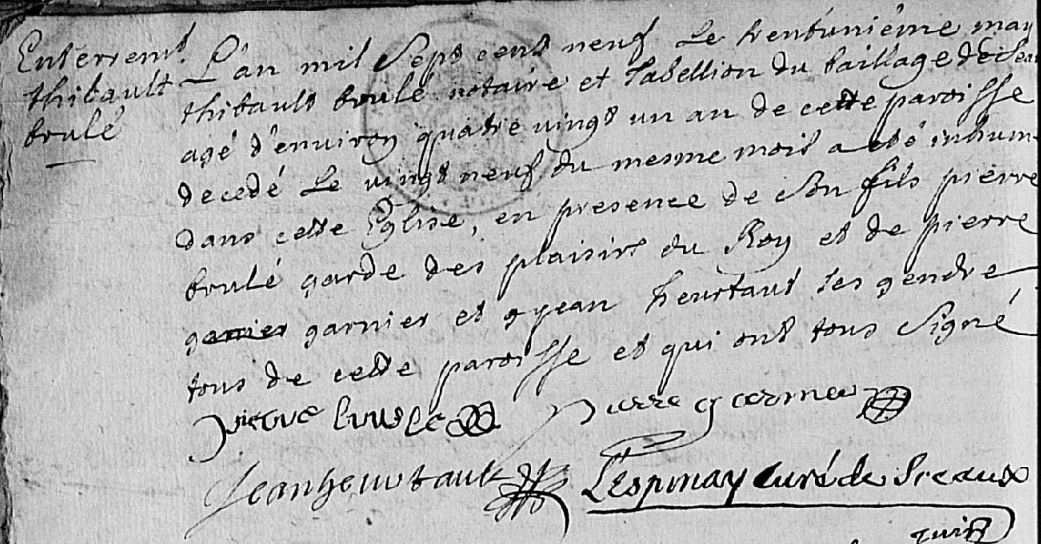 Enterrem.t
thibault
brulé
L'an mil sept cent neuf le trentuniéme may
thibault brulé notaire et tabellion du baillage de Sceau
agé d'environ quatre vingt un an de cette paroisse
decedé le vingt neuf du mesme mois a eté inhum
dans cette Eglise, en presence de son fils pierre
brulé garde des plaisirs du Roy et de pierre
garnier et jean heurtaut ses gendre
tous de cette paroisse et qui ont tous signé
pierre garnier
Jean heurtault
Lespinay curé de Sceaux
juin